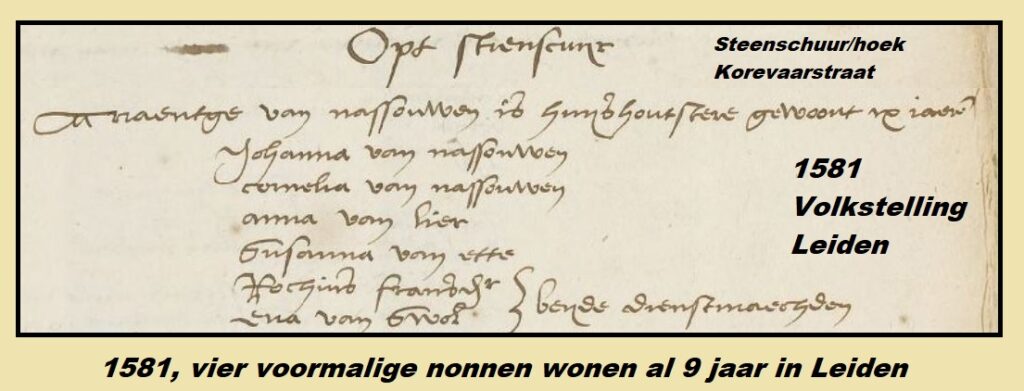 Opt stienscuyr
Steenschuur/hoek
Korevaarstraat
Maentge van nassouwen is huyshoutstere gewoont ix iaer
Johanna van nassouwen
cornelia van nassouwen
anna van lier
Susanna van ette
Rochius fransdr
Eva van Swol
beyde dienstmaechden
1581
Volkstelling
Leiden
1581, vier voormalige nonnen wonen al 9 jaar in Leiden